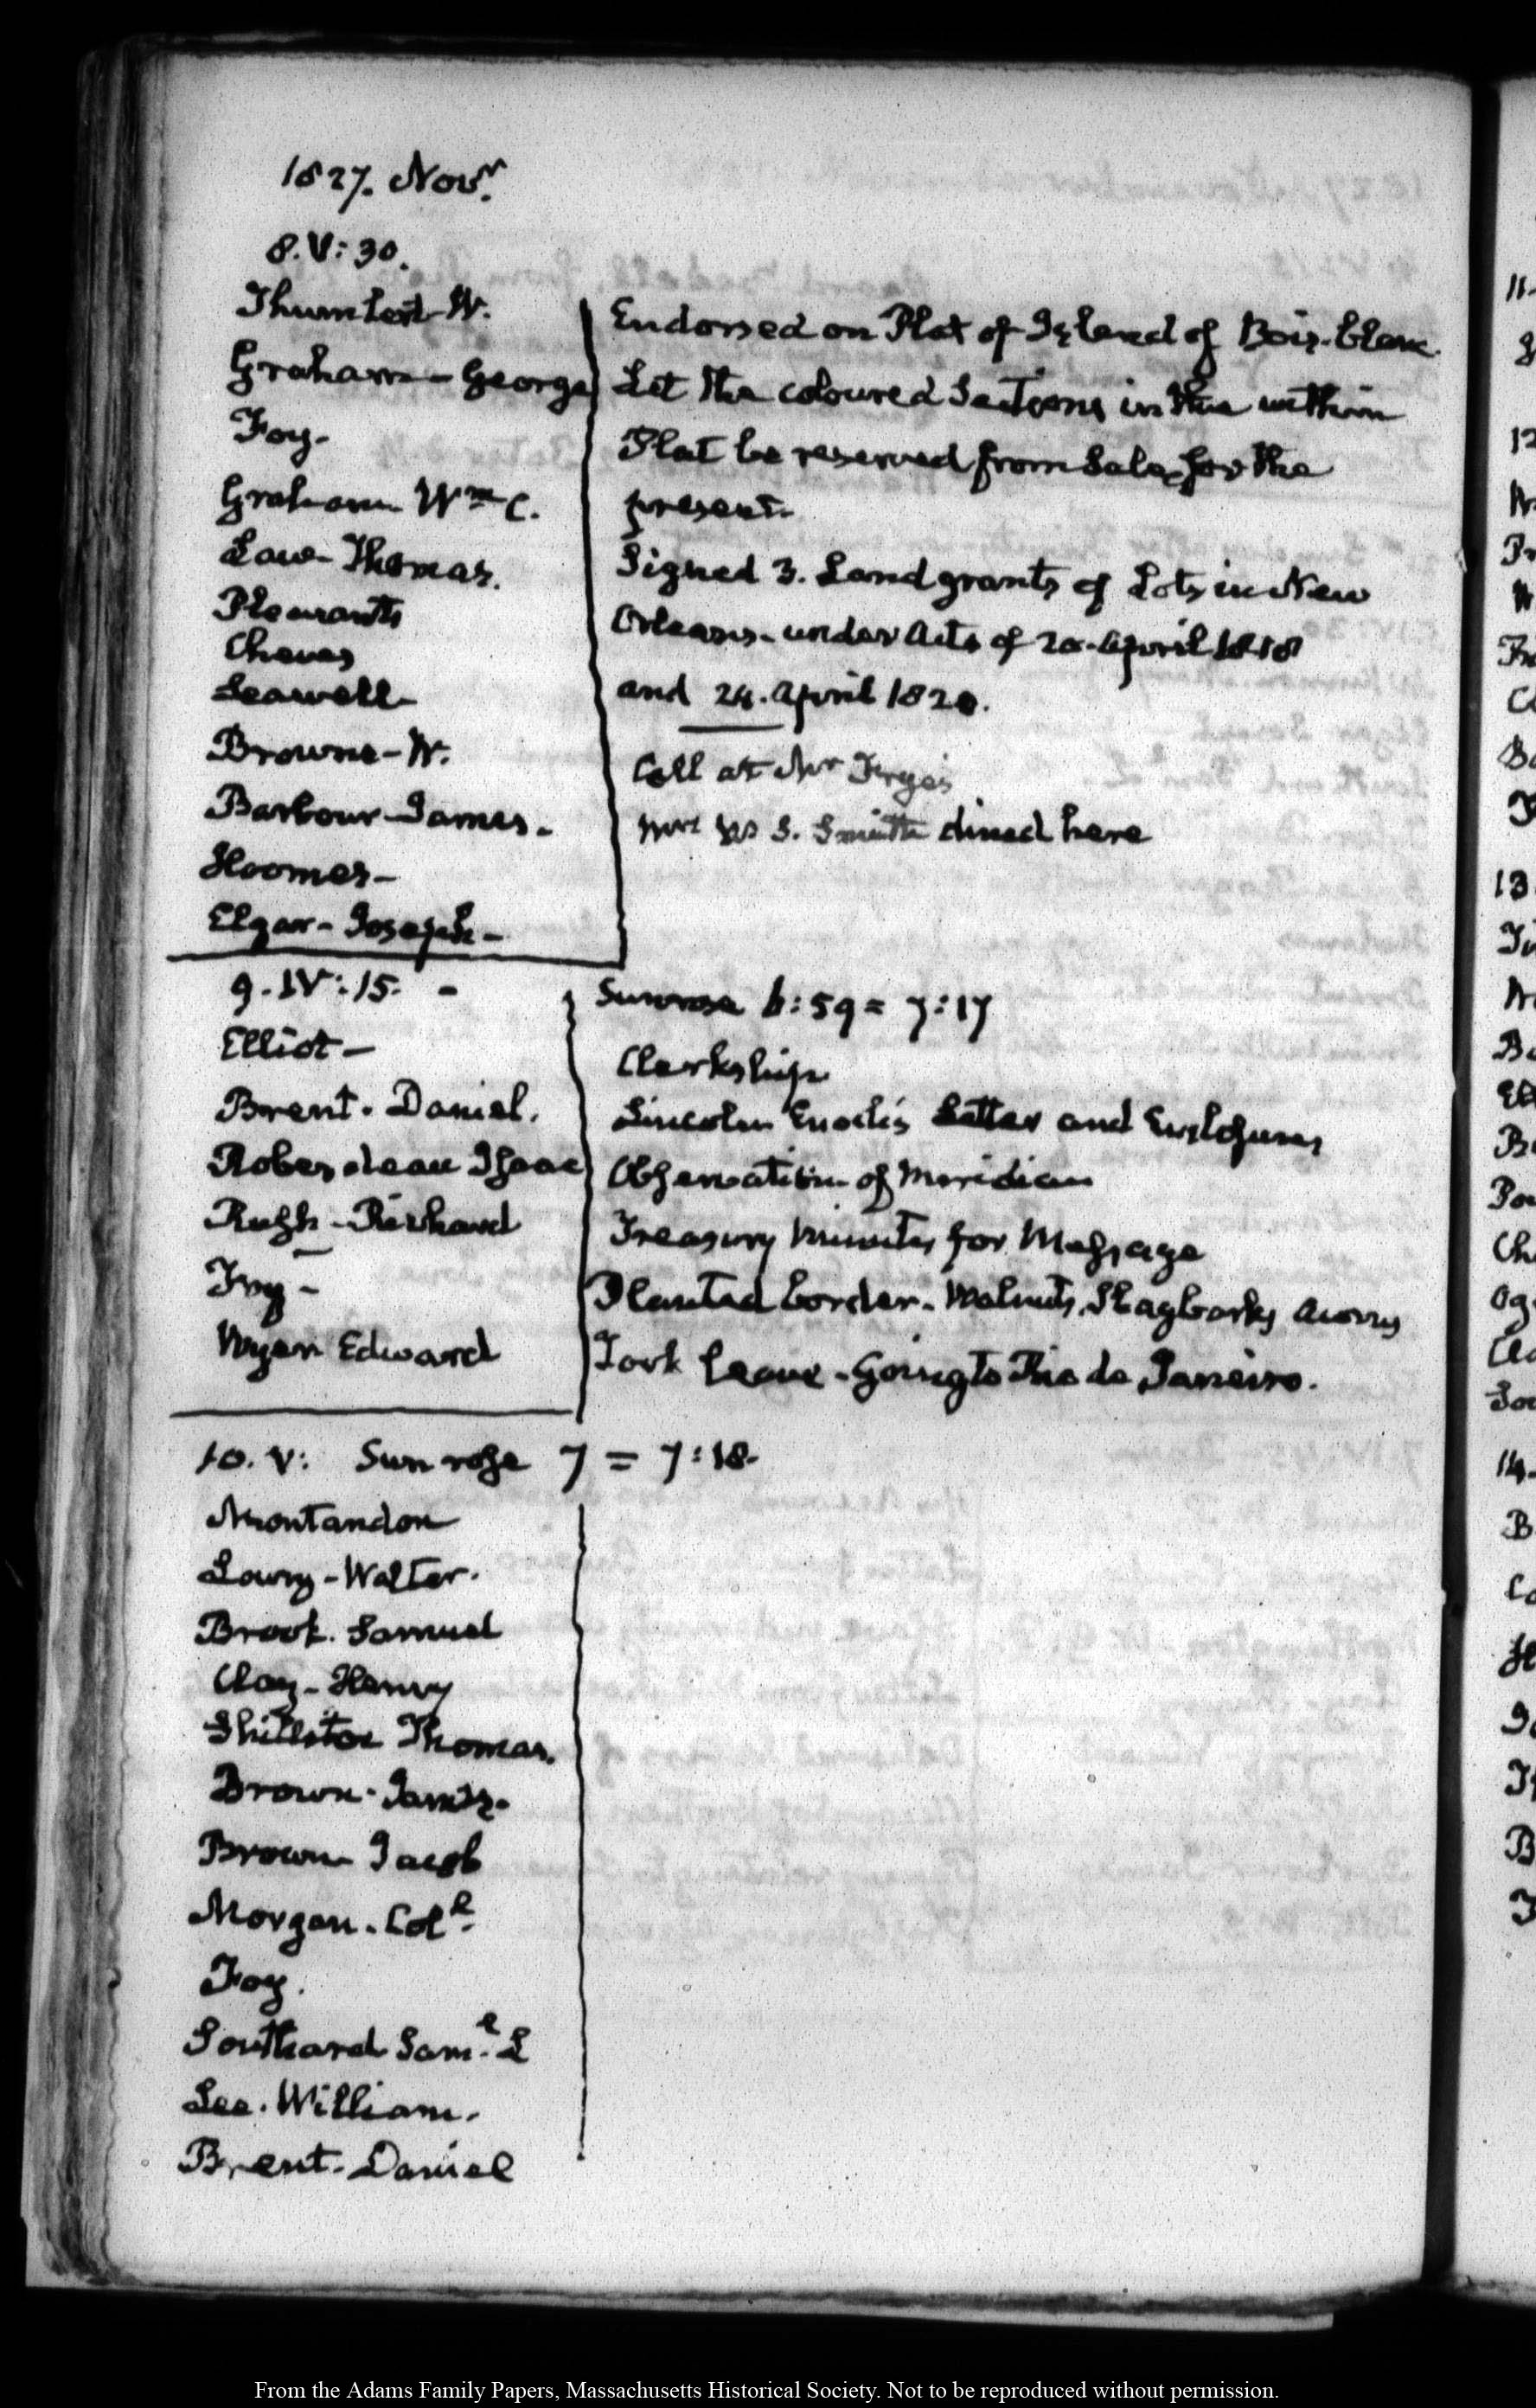 1827. Novr.
8. V: 30.
W.
Graham - George
Foy -
Graham Wm C.
Law - Thomas.
Pleasants
Cheves
Seawell -
Browne - W.
Barbour - James -
Hoomes -
Elgar - Joseph -
Endorsed on Plat of Island of Bois-blanc.
Let the coloured Sections in the within
Plat be reserved from Sale, for the
present.
Signed 3. Land grants of Lots in New
Orleans - under Acts of 20. April 1818
and 24. April 1820.
Call at Mr Frye's
Mrs W S. Smith dined here
9. IV: 15. -
Elliot -
Brent. Daniel.
Roberdeau Isaac
Rush - Richard
Foy -
Wyer Edward
Sunrose 6: 59 = 7: 17
Clerkship
Lincoln Enoch's Letter and Enclosures
Observation of Meridian
Treasury Minutes for Message
Planted border - Walnuts, Shagbarks Acorns
Took leave - Going to Rio de Janeiro.
10. V: Sun rose 7 = 7: 18.
Montandon
Lowry - Walter.
Brook. Samuel
Clay - Henry
Shillitoe Thomas.
Brown - James.
Brown Jacob
Morgan. Coll.
Foy.
Southard Saml. L
Lee. William.
Brent - Daniel
11.
12
13.
14.
From the Adams Family Papers, Massachusetts Historical Society. Not to be reproduced without permission.